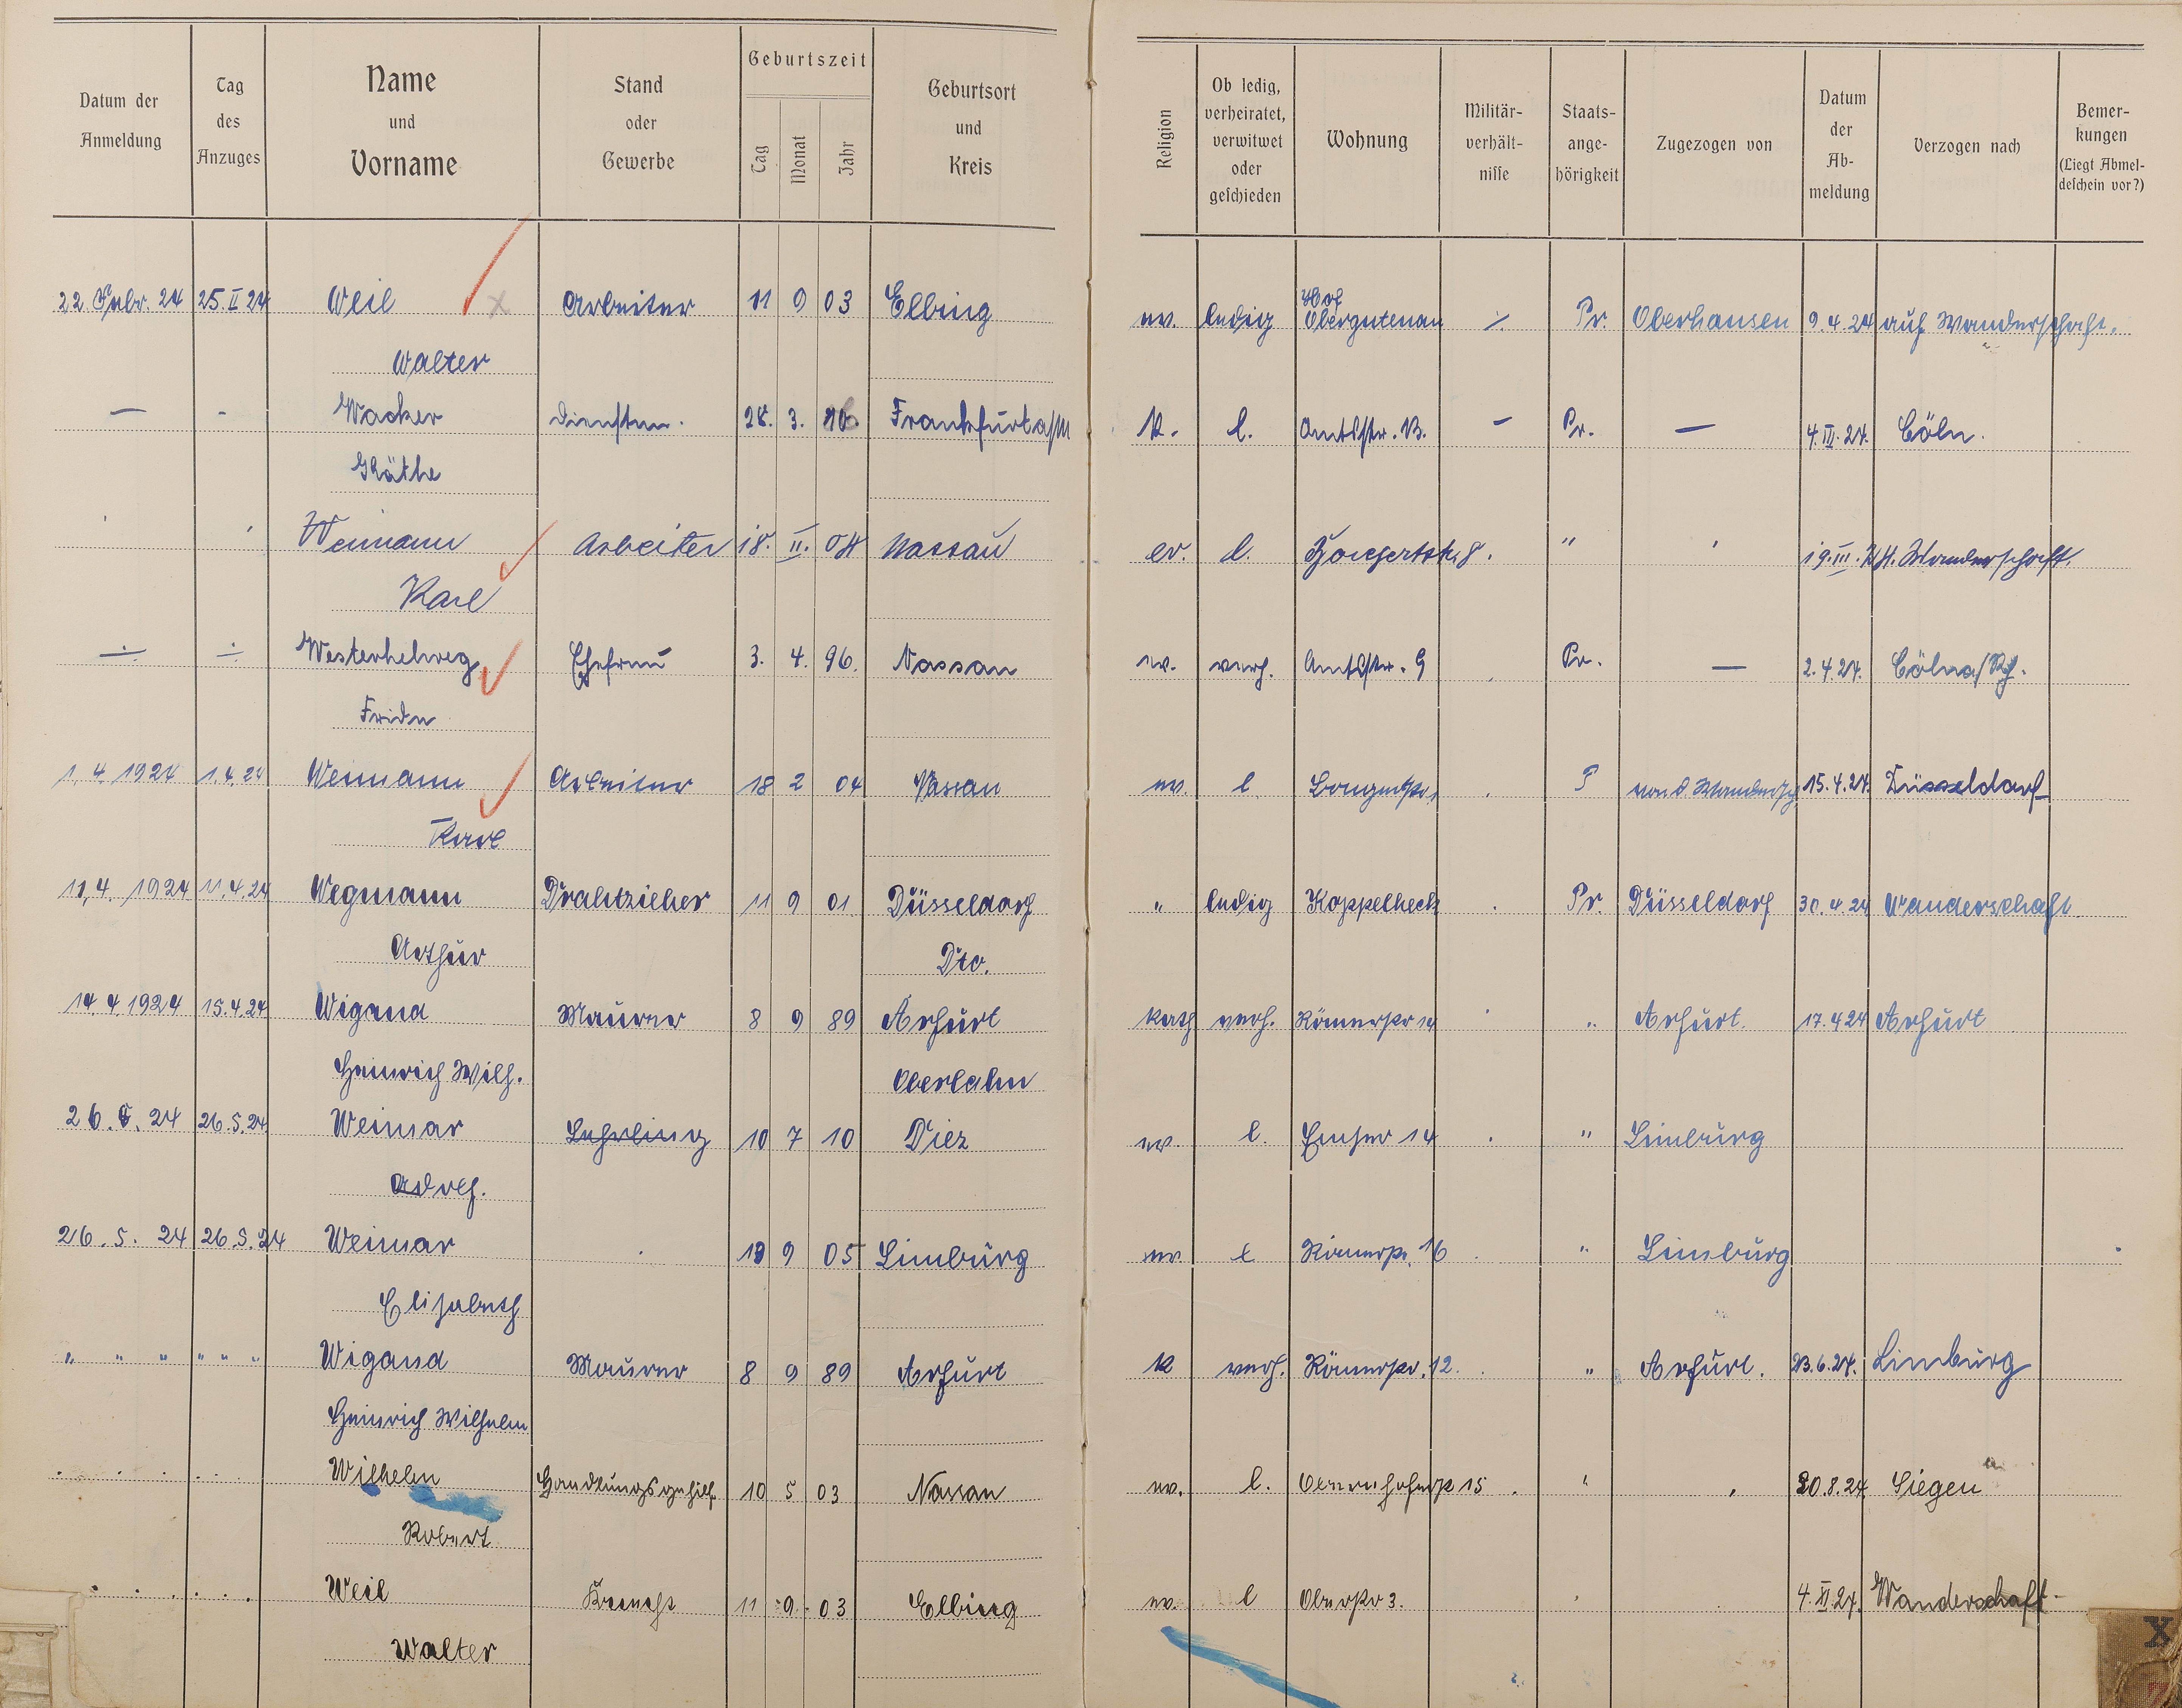 Datum der Anmeldung
Tag des Anzuges
Name und Vorname
Stand oder Gewerbe
Geburtszeit
Tag Monat Jahr
Geburtsort und Kreis
Religion
Ob ledig, verheiratet, verwitwet oder geschieden
Wohnung
Militär-verhält-nisse
Staats-ange-hörigkeit
Zugezogen von
Datum der Ab-meldung
Verzogen nach
Bemer-kungen (Liegt Abmel-deschein vor?)
22. Febr. 24 25.II 24 Weil Arbeiter 11 9 03 Elbing ev. ledig Hof Obergutenau ./. Pr. Oberhausen 9.4.24 auf Wanderschaft.
Walter
— - Wacker Dienstm. 28. 3. Frankfurt a/M K. l. Amtsstr. 13. — Pr. — 4.III.24. Cöln.
Käthe
Weimann Arbeiter 18. II. 04 Nassau ev. l. 8. " 19.III. 24. Wanderschaft.
Karl
Westerhelweg Ehefrau 3. 4. 96. Nassau ev. verh. Amtsstr. 9 Pr. — 2.4.24. Cöln a/Rh.
Frida
1.4.1924 1.4.24 Weimann Arbeiter 18 2 04 Nassau ev. l P von d. Wandersch 15.4.24. Düsseldorf
Karl
11.4.1924 11.4.24 Wegmann Drahtzieher 11 9 01 Düsseldorf " ledig Koppelheck Pr. Düsseldorf 30.4.24 Wanderschaft
Arthur Dto.
14.4.1924 15.4.24 Wigand Maurer 8 9 89 Arfurt kath verh. Römerstr 14 " Arfurt. 17.4.24 Arfurt
Heinrich Wilh. Oberlahn
26.5.24 26.5.24 Weimar Lehrling 10 7 10 Diez ev. l. Emser 14 " Limburg
Adolf.
26.5.24 26.5.24 Weimar 9 05 Limburg ev. l Römerstr. 16 " Limburg
Elisabeth
" " " " " " Wigand Maurer 8 9 89 Arfurt K verh. Römerstr. 12. " Arfurt. 23.6.24. Limburg
Heinrich Wilhelm
Wilhelm Handlungsgehilf. 10 5 03 Nassau ev. l. 15 " 20.8.24 Siegen
Robert
Weil Knecht 11 9. 03 Elbing ev. l Oberstr 3. 4.XI.24. Wanderschaft
Walter
X